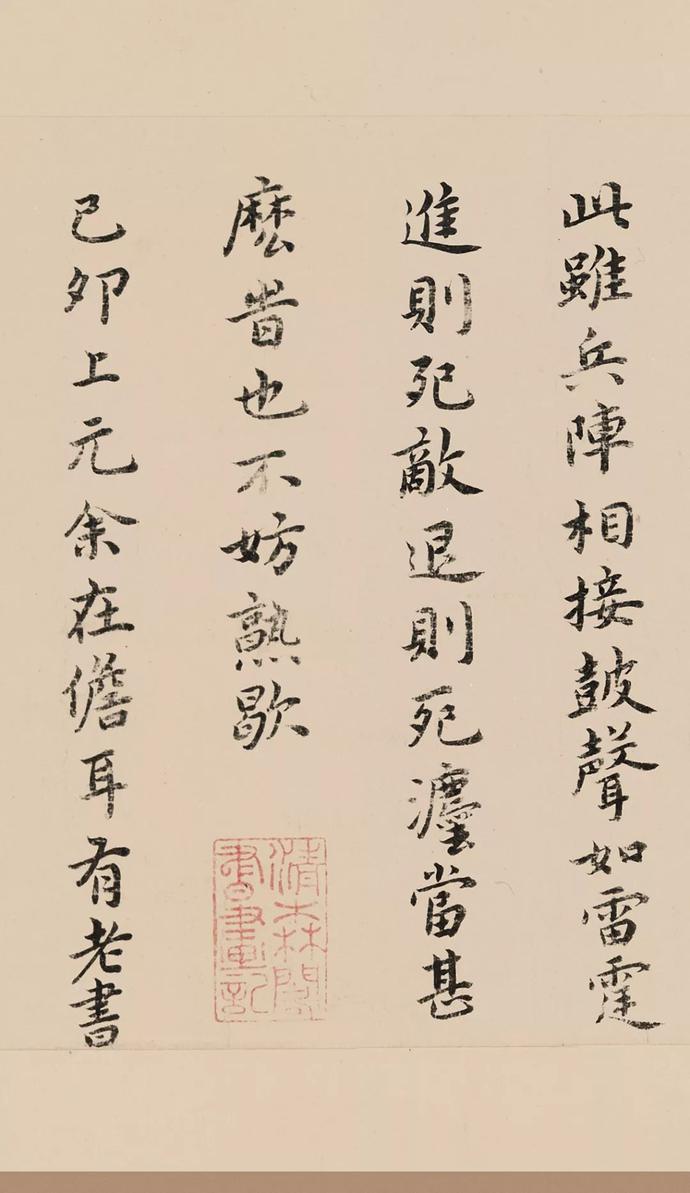 此雖兵陣相接皷聲如雷霆
進則死敵退則死灋當甚
麽旹也不妨熟歇
清森閣書畫記
己卯上元余在儋耳有老書